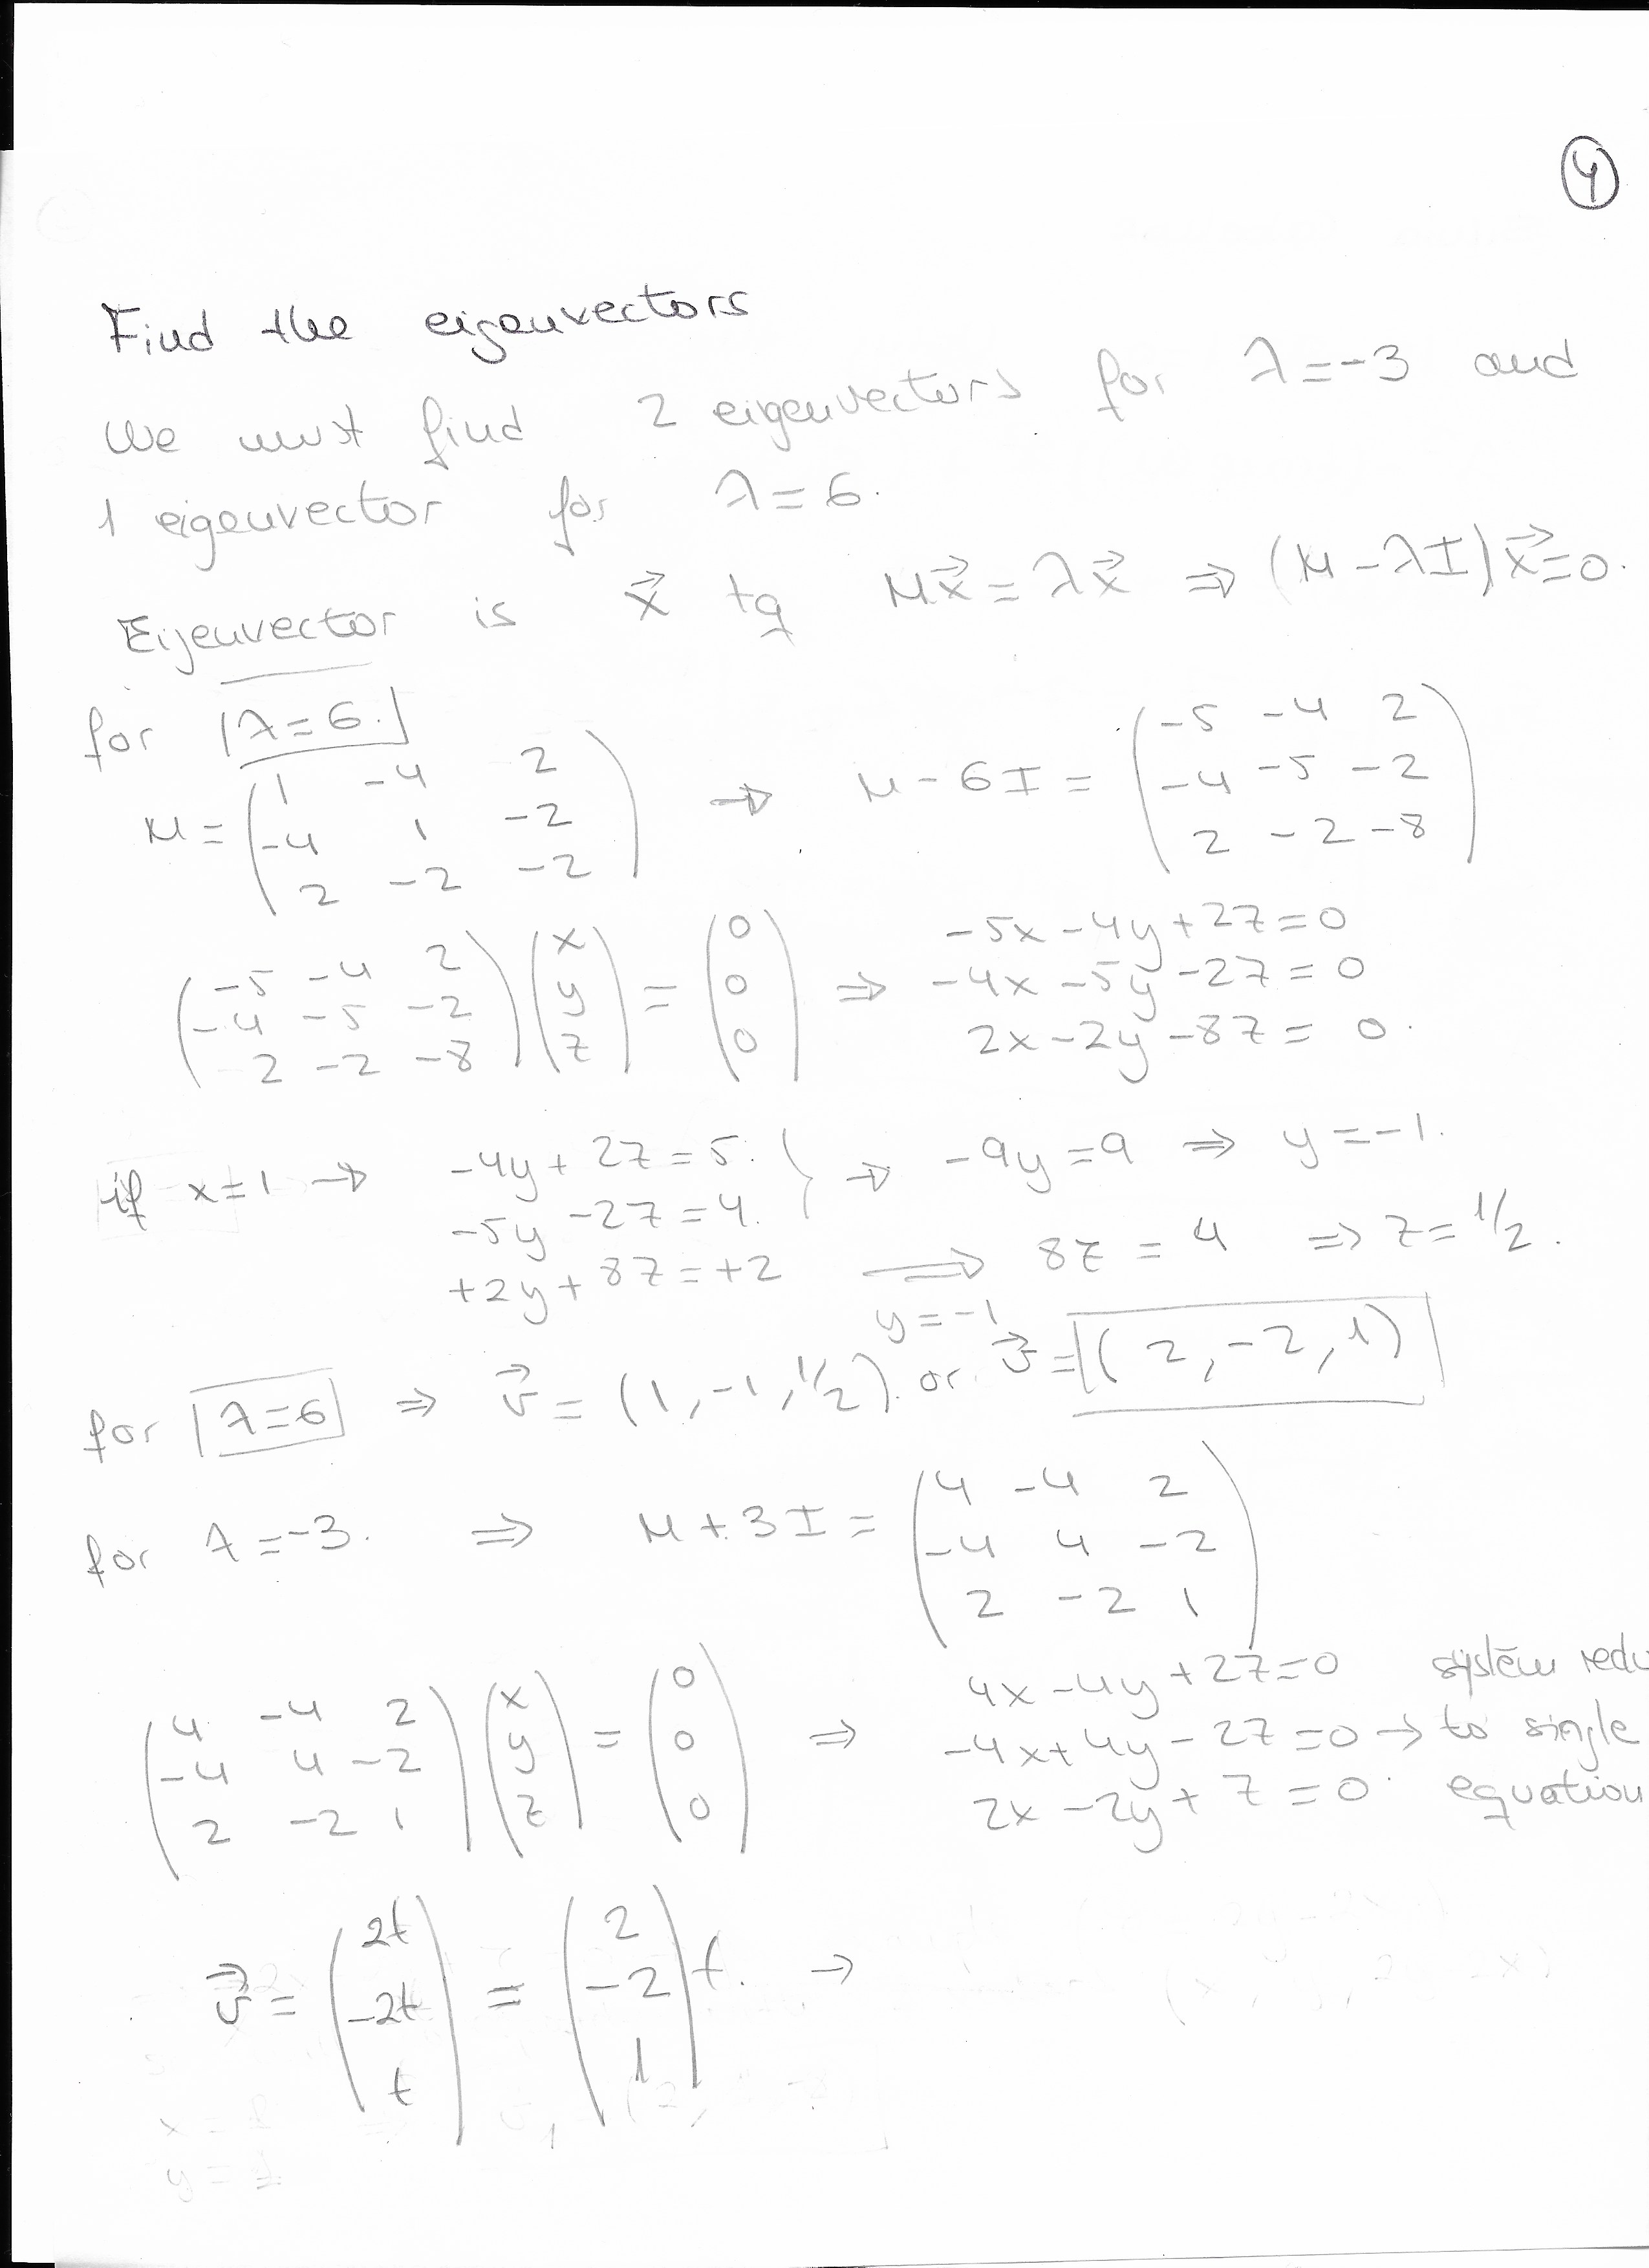 4
Find the eigenvectors
We must find 2 eigenvectors for λ=-3 and
1 eigenvector for λ=6.
Eigenvector is x⃗ tq Mx⃗=λx⃗ ⇒ (M-λI)x⃗=0.
for λ=6.
M = (1 -4 2 ; -4 1 -2 ; 2 -2 -2) → M-6I = (-5 -4 2 ; -4 -5 -2 ; 2 -2 -8)
(-5 -4 2 ; -4 -5 -2 ; 2 -2 -8) (x ; y ; z) = (0 ; 0 ; 0) ⇒
-5x-4y+2z=0
-4x-5y-2z=0
2x-2y-8z=0.
if x=1 → -4y+2z=5. } → -9y=9 ⇒ y=-1.
-5y-2z=4.
+2y+8z=+2 ⟹ y=-1 8z=4 ⇒ z=1/2.
for λ=6 ⇒ v⃗=(1,-1,1/2) or v⃗=(2,-2,1)
for λ=-3. ⇒ M+3I = (4 -4 2 ; -4 4 -2 ; 2 -2 1)
(4 -4 2 ; -4 4 -2 ; 2 -2 1) (x ; y ; z) = (0 ; 0 ; 0) ⇒
4x-4y+2z=0 system redu
-4x+4y-2z=0 → to single
2x-2y+z=0 equation
v⃗ = (2t ; -2t ; t) = (2 ; -2 ; 1) t. →